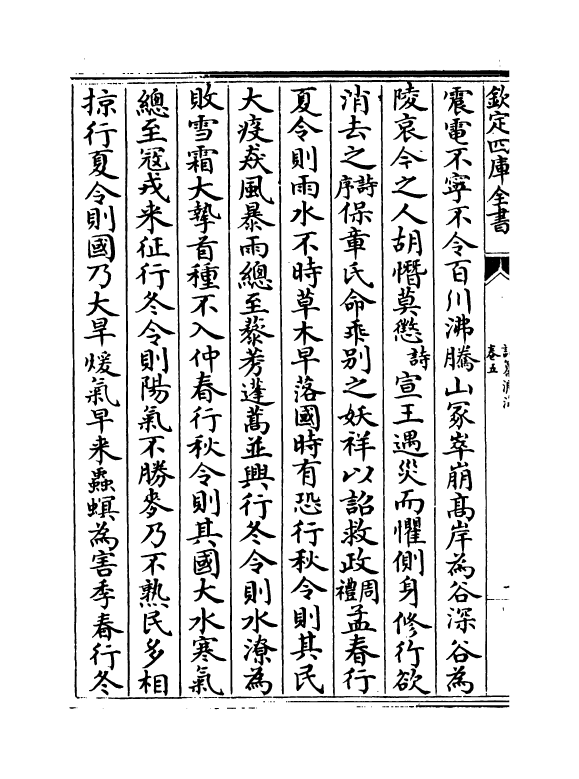 欽定四庫全書
卷五
震電不寧不令百川沸騰山冢崒崩髙岸為谷深谷為
陵哀今之人胡憯莫懲詩宣王遇災而懼側身修行欲
消去之詩序保章氏命乖别之妖祥以詔救政周禮孟春行
夏令則雨水不時草木早落國時有恐行秋令則其民
大疫猋風暴雨總至藜莠蓬蒿並興行冬令則水潦為
敗雪霜大摯首種不入仲春行秋令則其國大水寒氣
總至寇戎来征行冬令則陽氣不勝麥乃不熟民多相
掠行夏令則國乃大旱煖氣早来蟲螟為害季春行冬